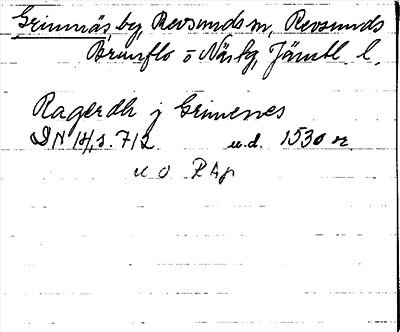 Grimnäs, by, Revsunds sn, Revsunds
Brunflo o Näs tg, Jämtl. l.
Ragerdh j Grimenes
DN 14, s. 712 u.d. 1530
u o RAp